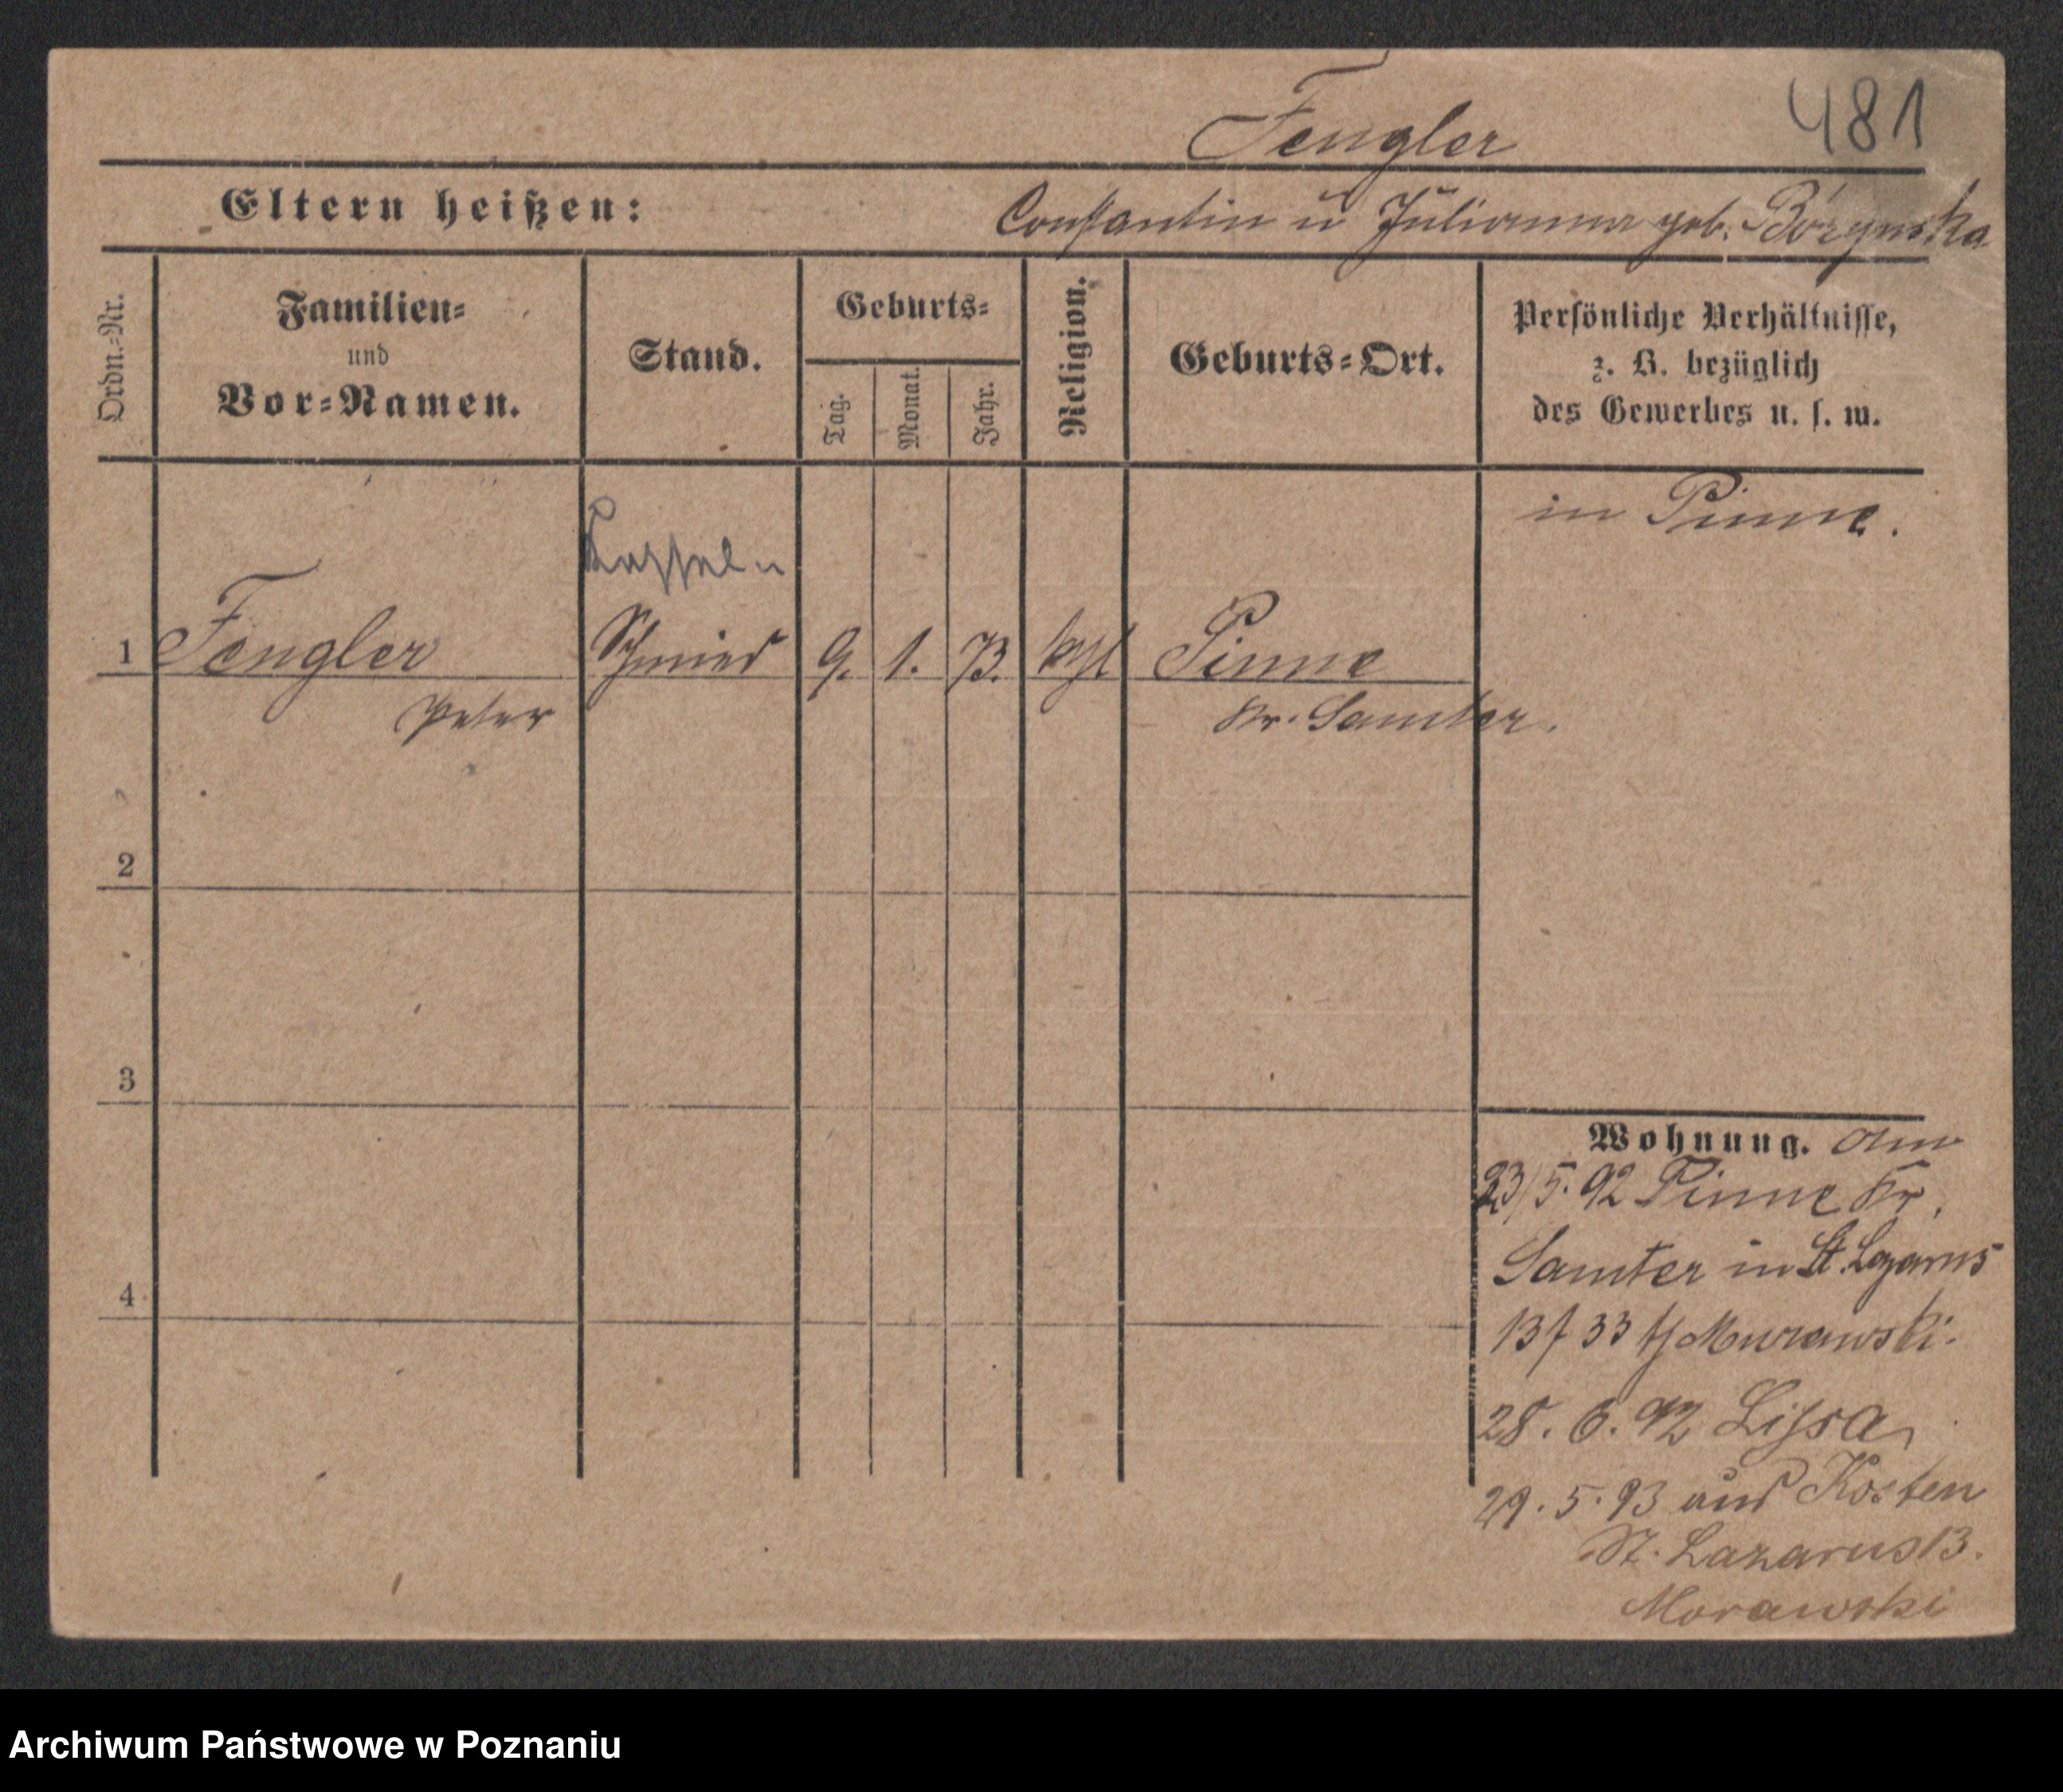 481
Fengler
Eltern heißen:
Constantin u Julianna geb.
Ordn.-Nr.
Familien-
und
Vor-Namen.
Stand.
Geburts-
Tag.
Monat.
Jahr.
Religion.
Geburts-Ort.
Persönliche Verhältnisse,
z. B. bezüglich
des Gewerbes u. s. w.
in Pinne.
1 Fengler Schmied 9. 1. 73. kath Pinne
Peter Kr. Samter.
2
3
4
Wohnung. am
23/5. 92 Pinne Kr.
Samter in St. Lazarus
13 33 Murawski.
28. 6. 92 Lissa
29. 5. 93 aus Kosten
St. Lazarus 13.
Morawski
Archiwum Państwowe w Poznaniu